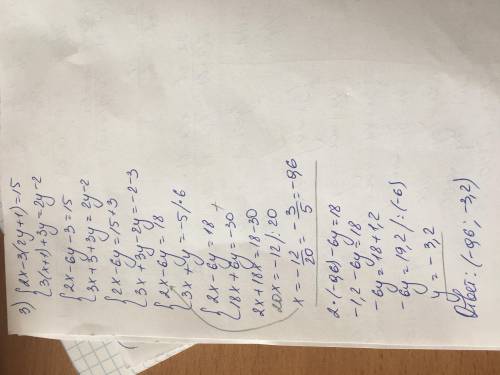 3) { 2x-3(2y+1)=15
3(x+1)+3y=2y-2
{ 2x-6y-3=15
3x+3+3y=2y-2
{ 2x-6y=15+3
3x+3y-2y=-2-3
{ 2x-6y=18
3x+y=-5/·6
{ 2x-6y=18
18x+6y=-30 +
2x+18x=18-30
20x=-12/:20
x=-12/20=-3/5=-0,6
2·(-0,6)-6y=18
-1,2-6y=18
-6y=18+1,2
-6y=19,2/:(-6)
y=-3,2
Ответ: (-0,6; -3,2)